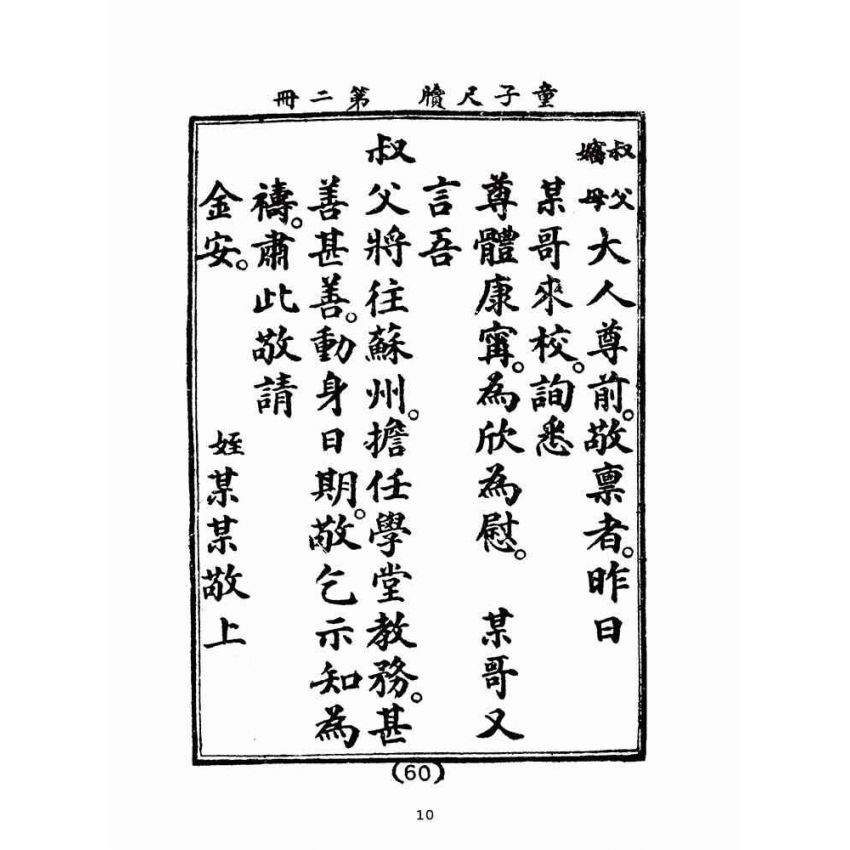 童子尺牘　第二冊
叔父嬸母大人尊前。敬禀者。昨日
某哥來校。詢悉
尊體康甯。為欣為慰。　某哥又
言吾
叔父將往蘇州。擔任學堂教務。甚
善甚善。動身日期。敬乞示知為
禱。肅此敬請
金安。
姪某某敬上
(60)
10